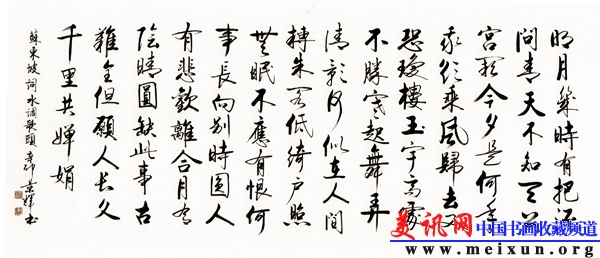 明月幾時有把酒
問青天不知天上
宮闕今夕是何年
我欲乘風歸去又
恐瓊樓玉宇高處
不勝寒起舞弄
清影何似在人間
轉朱閣低綺戶照
無眠不應有恨何
事長向別時圓人
有悲歡離合月有
陰晴圓缺此事古
難全但願人長久
千里共嬋娟
蘇東坡詞水調歌頭 辛卯 書
美讯网 中国书画收藏频道
www.meixun.org